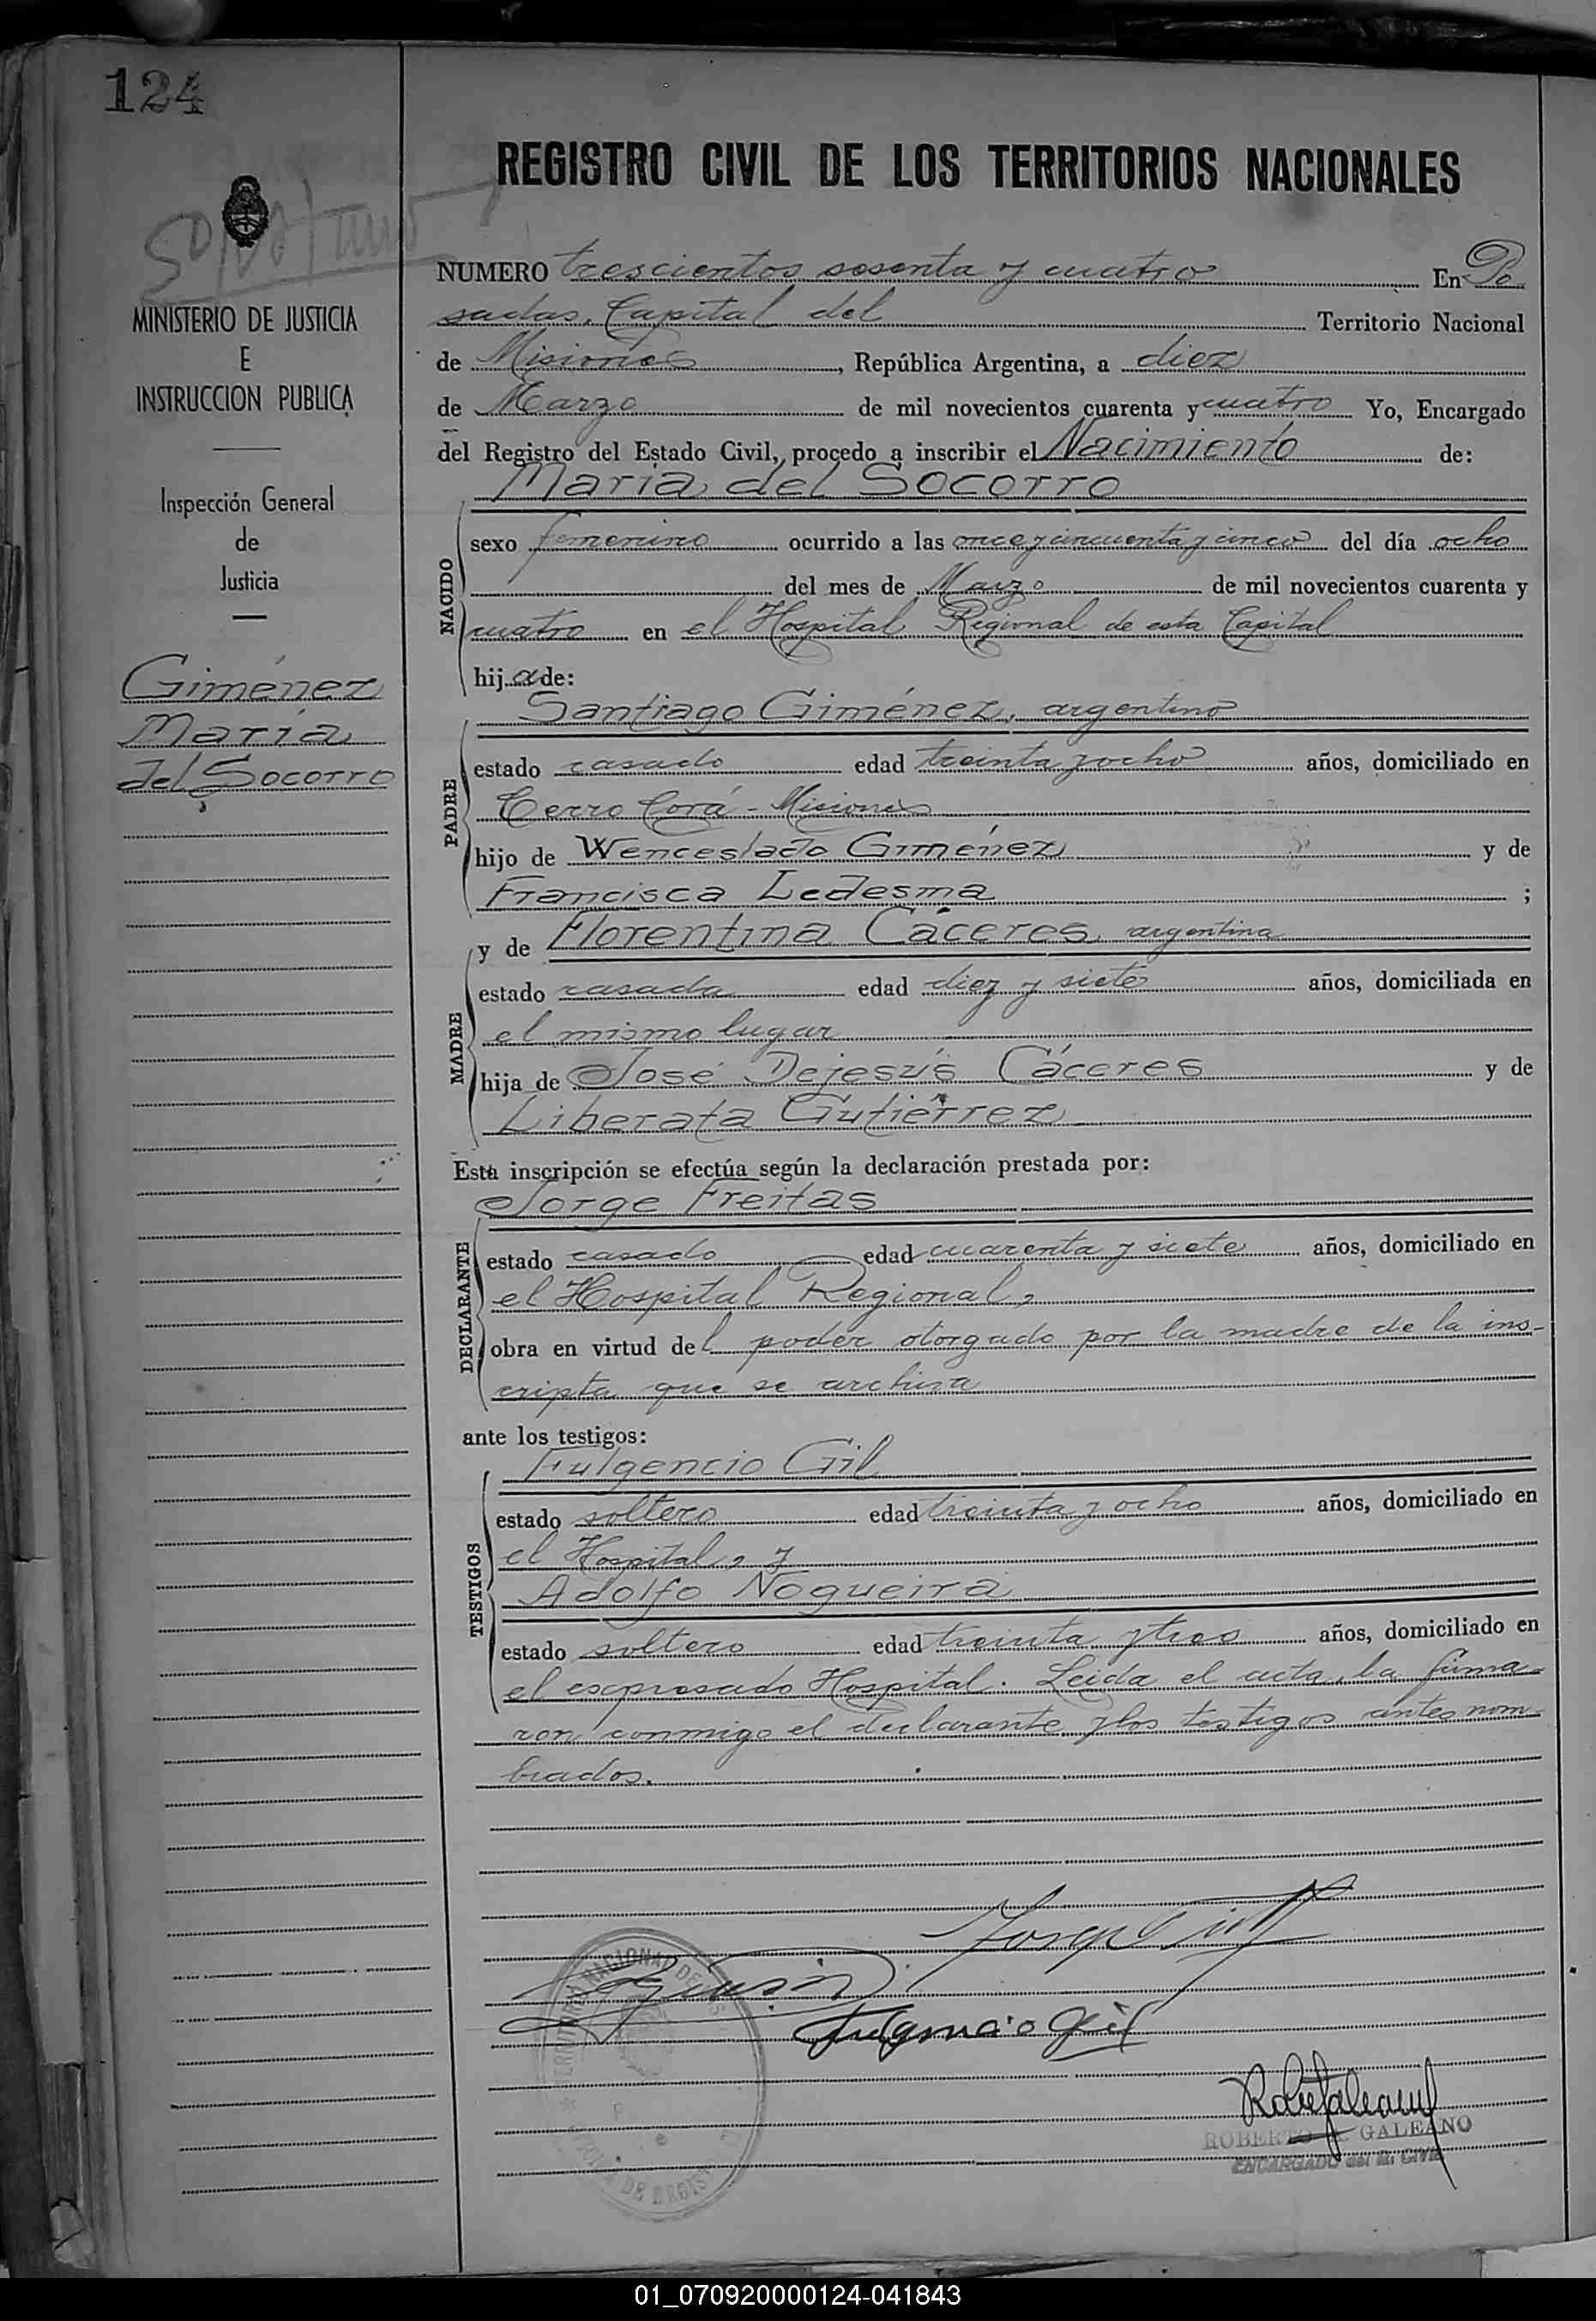 124
REGISTRO CIVIL DE LOS TERRITORIOS NACIONALES
MINISTERIO DE JUSTICIA
E
INSTRUCCION PUBLICA
Inspección General
de
Justicia
Giménez
María
del Socorro
NUMERO trescientos sesenta y cuatro En Po
sadas, Capital del Territorio Nacional
de Misiones, República Argentina, a diez
de Marzo de mil novecientos cuarenta y cuatro Yo, Encargado
del Registro del Estado Civil, procedo a inscribir el Nacimiento de:
María del Socorro
NACIDO
sexo femenino ocurrido a las once y cincuenta y cinco del día ocho
del mes de Marzo de mil novecientos cuarenta y
cuatro en el Hospital Regional de esta Capital
hija de:
Santiago Giménez, argentino
PADRE
estado casado edad treinta y ocho años, domiciliado en
Cerro Corá - Misiones
hijo de Wenceslado Giménez y de
Francisca Ledesma ;
y de Florentina Cáceres, argentina
MADRE
estado casada edad diez y siete años, domiciliada en
el mismo lugar
hija de José Dejesús Cáceres y de
Liberata Gutiérrez
Esta inscripción se efectúa según la declaración prestada por:
Jorge Freitas
DECLARANTE
estado casado edad cuarenta y siete años, domiciliado en
el Hospital Regional,
obra en virtud del poder otorgado por la madre de la ins-
cripta que se archiva
ante los testigos:
Fulgencio Gil
TESTIGOS
estado soltero edad treinta y ocho años, domiciliado en
el Hospital, y
Adolfo Nogueira
estado soltero edad treinta y tres años, domiciliado en
el expresado Hospital. Leida el acta, la firma-
ron conmigo el declarante y los testigos antes nom-
brados.
Fulgencio Gil
ROBERTO GALEANO
ENCARGADO del R. CIVIL
01_070920000124-041843